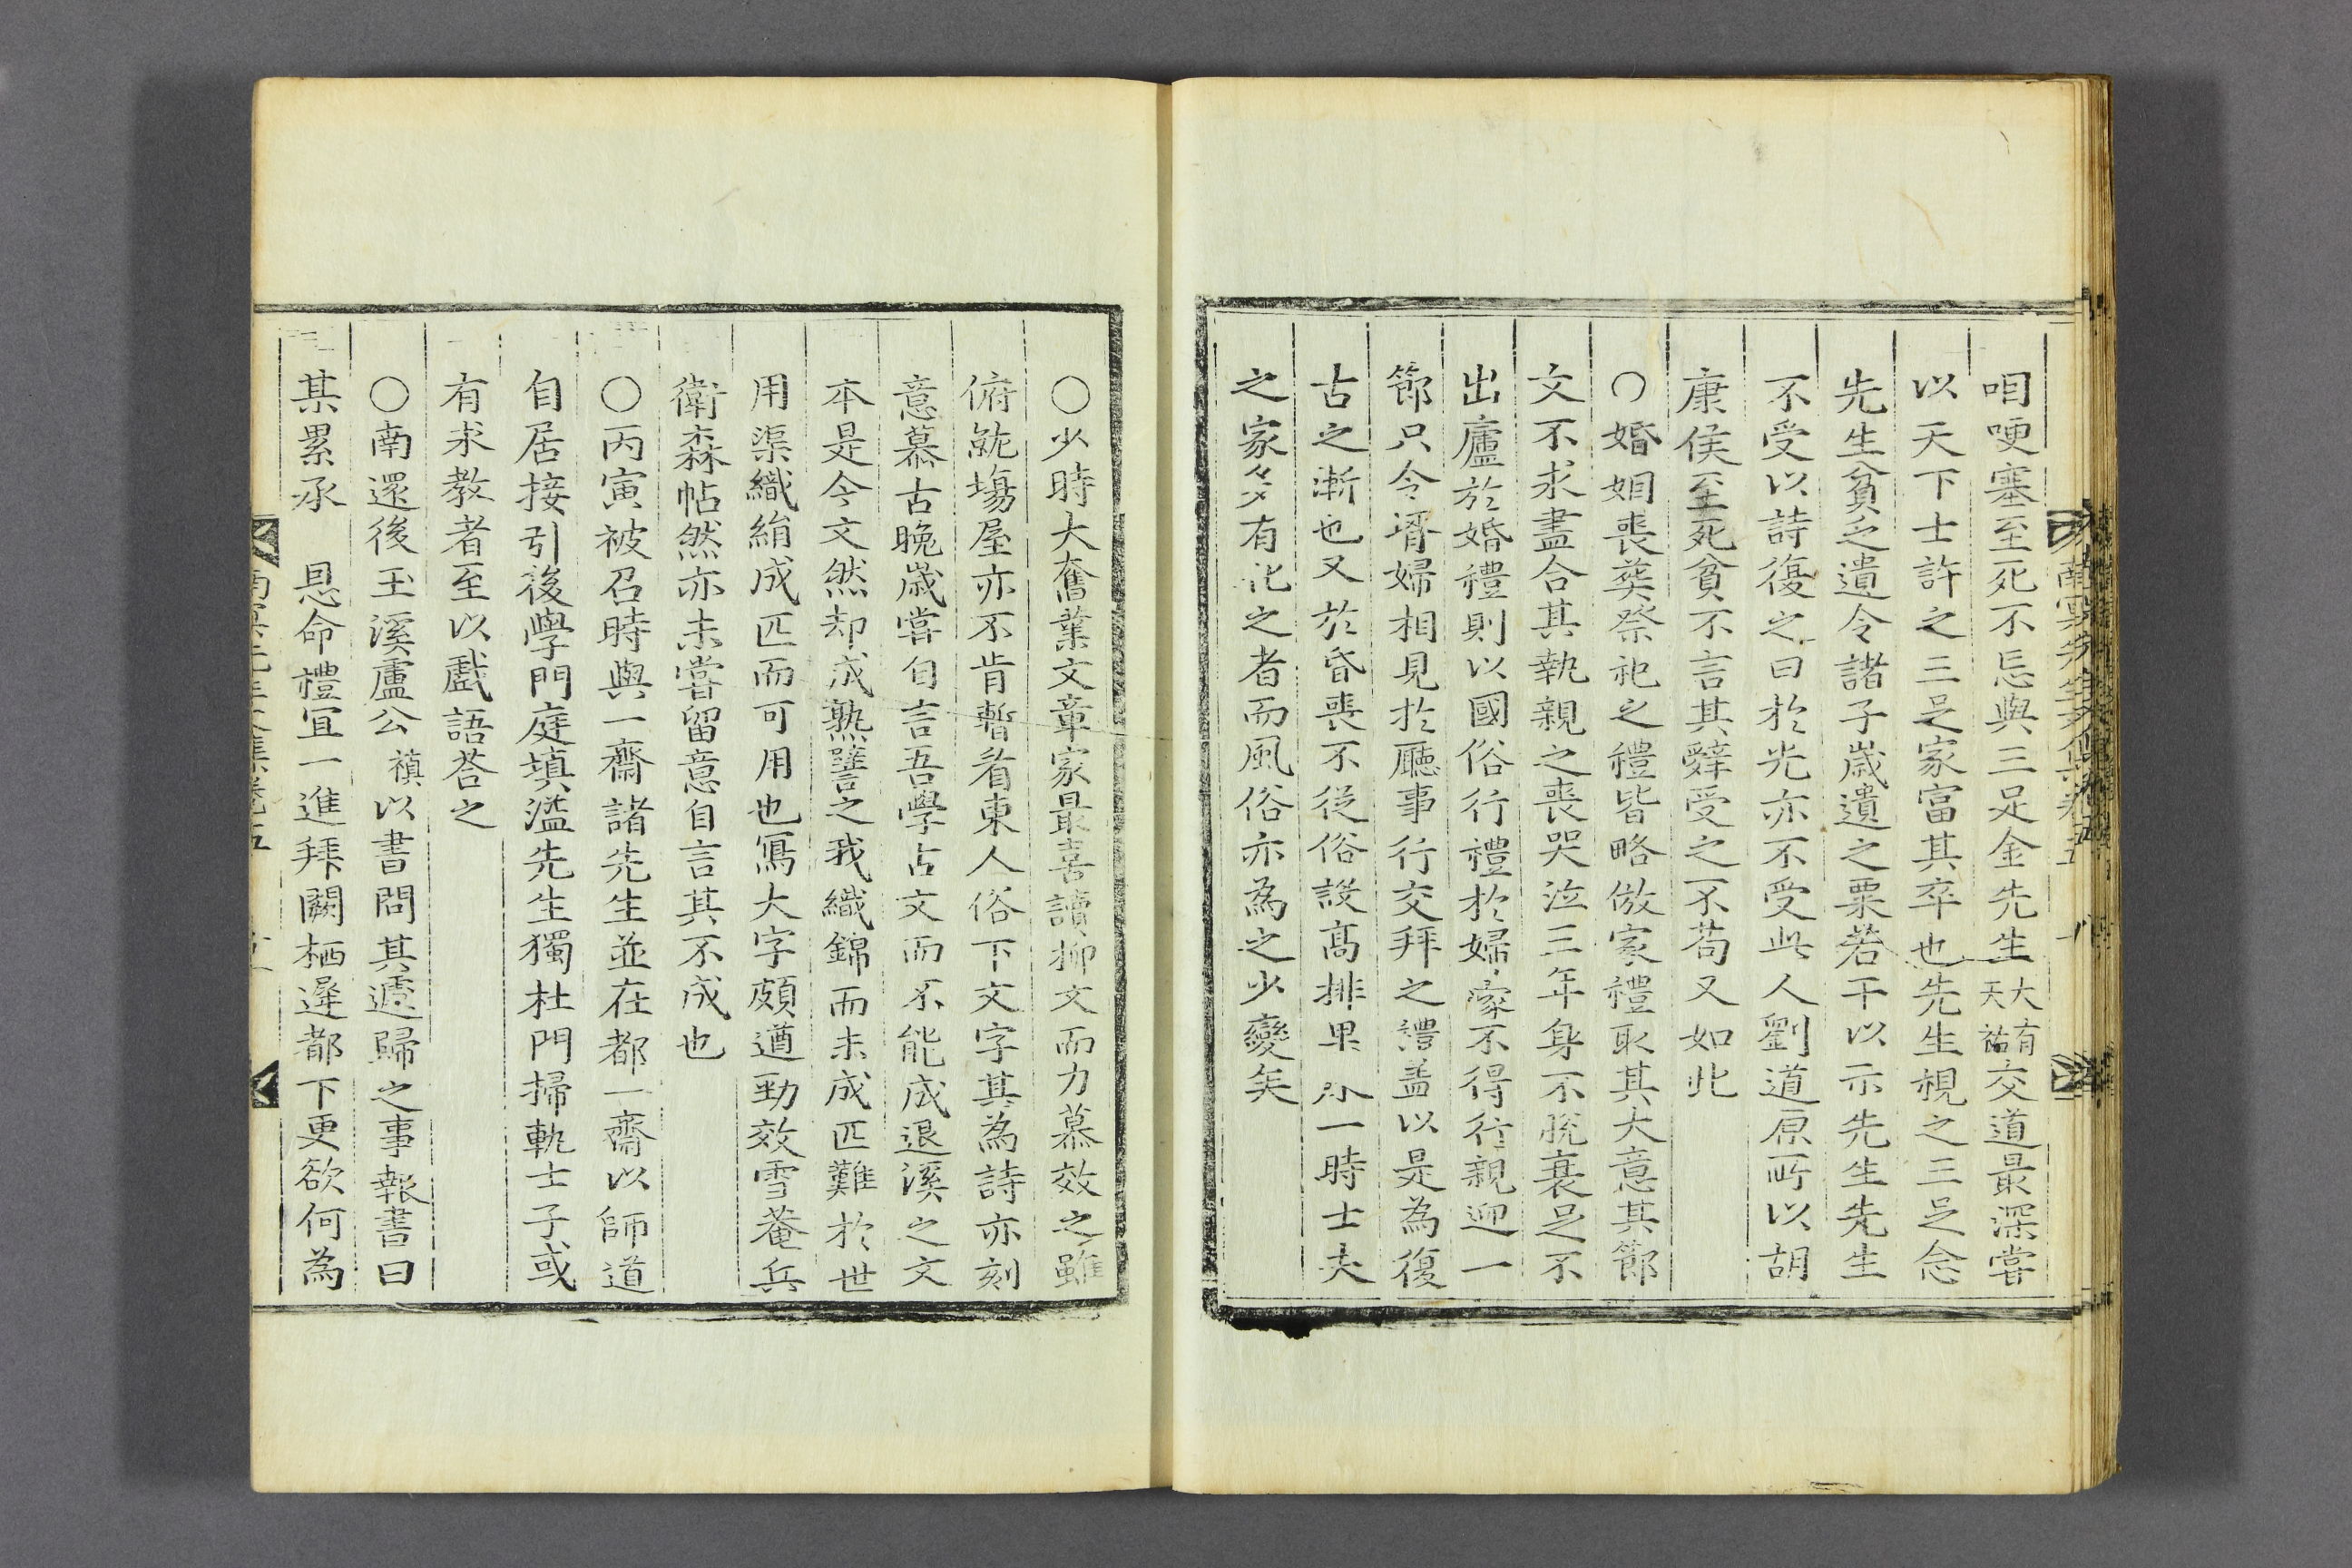 咱哽塞至死不忘與三足金先生大有天祐交道最深嘗
以天下士許之三足家富其卒也先生視之三足念
先生貧乏遺令諸子歲遺之粟若干以示先生先生
不受以詩復之曰於光亦不受此人劉道原所以胡
康侯至死貧不言其辭受之不苟又如此
○婚姻喪葬祭祀之禮皆略倣家禮取其大意其節
文不求盡合其執親之喪哭泣三年身不脫衰足不
出廬於婚禮則以國俗行禮於婦家不得行親迎一
節只令壻婦相見於廳事行交拜之禮盖以是為復
古之漸也又於昏喪不從俗設高排果 一時士夫
之家多有化之者而風俗亦為之少變矣
○少時大奮業文章家最喜讀柳文而力慕效之雖
俯就場屋亦不肯暫看東人俗下文字其為詩亦刻
意慕古晚歲嘗自言吾學古文而不能成退溪之文
本是今文然却成熟譬之我織錦而未成匹難於世
用渠織絹成匹而可用也寫大字頗遒勁效雪菴兵
衛森帖然亦未嘗留意自言其不成也
○丙寅被召時與一齋諸先生並在都一齋以師道
自居接引後學門庭填溢先生獨杜門掃軌士子或
有求教者至以戲語荅之
○南還後玉溪盧公禛以書問其遽歸之事報書曰
某累承 恩命禮宜一進拜闕栖遲都下更欲何為